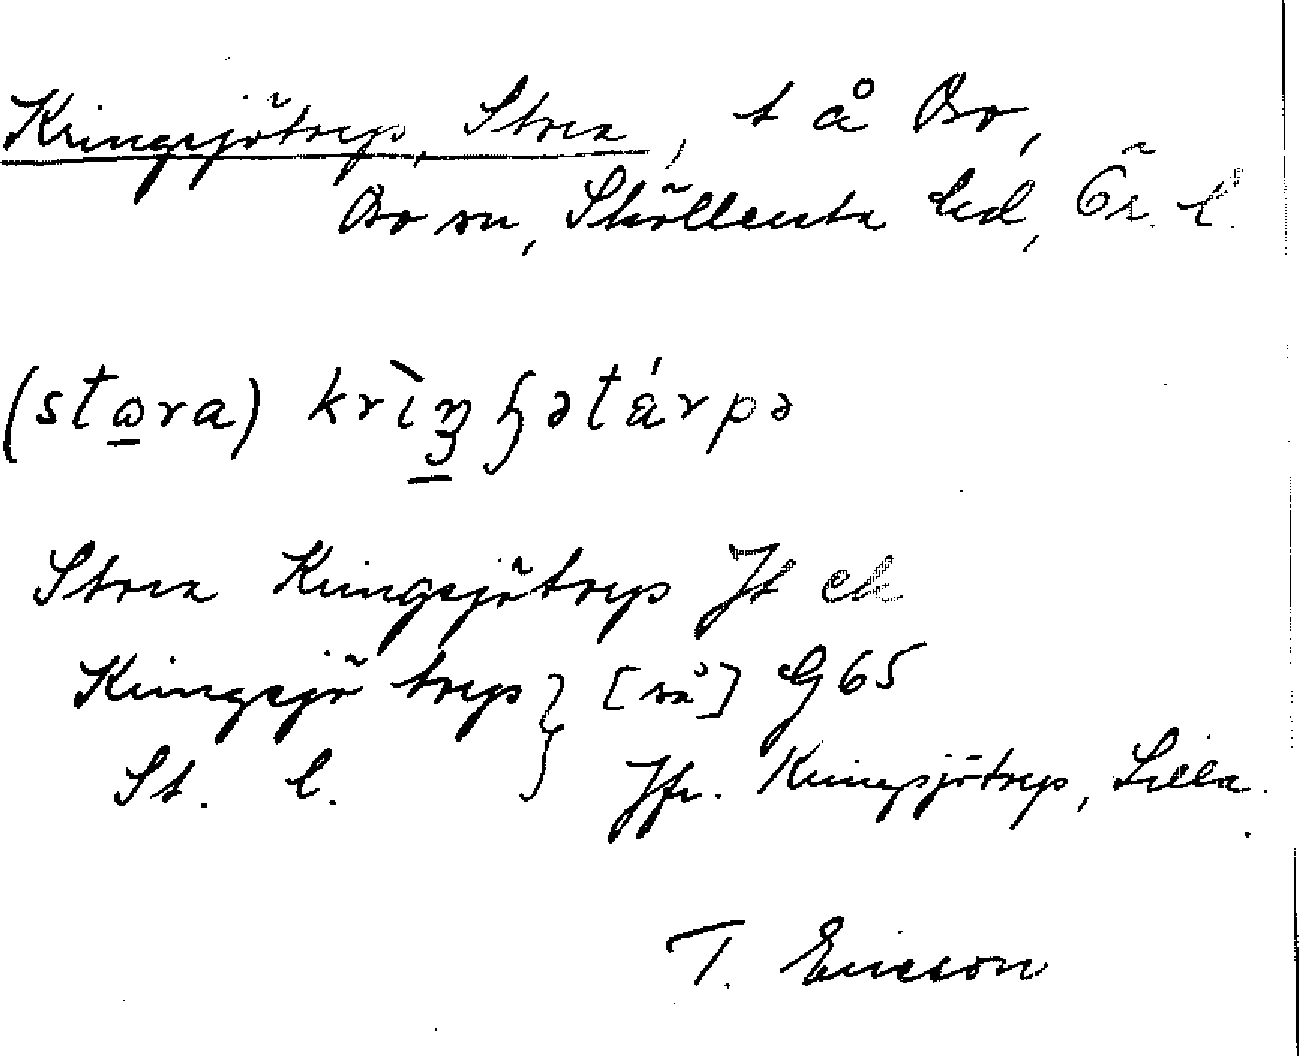 Kringsjötorp, Stora, t å Bo,
Bo sn, Sköllersta hd, Ör. l.
(stora) krìŋʂətárpə
Stora Kringsjötorp Jt ek
Kringsjö torp } [så] G65
St. l. } Jfr. Kringsjötorp, Lilla.
T. Ericson